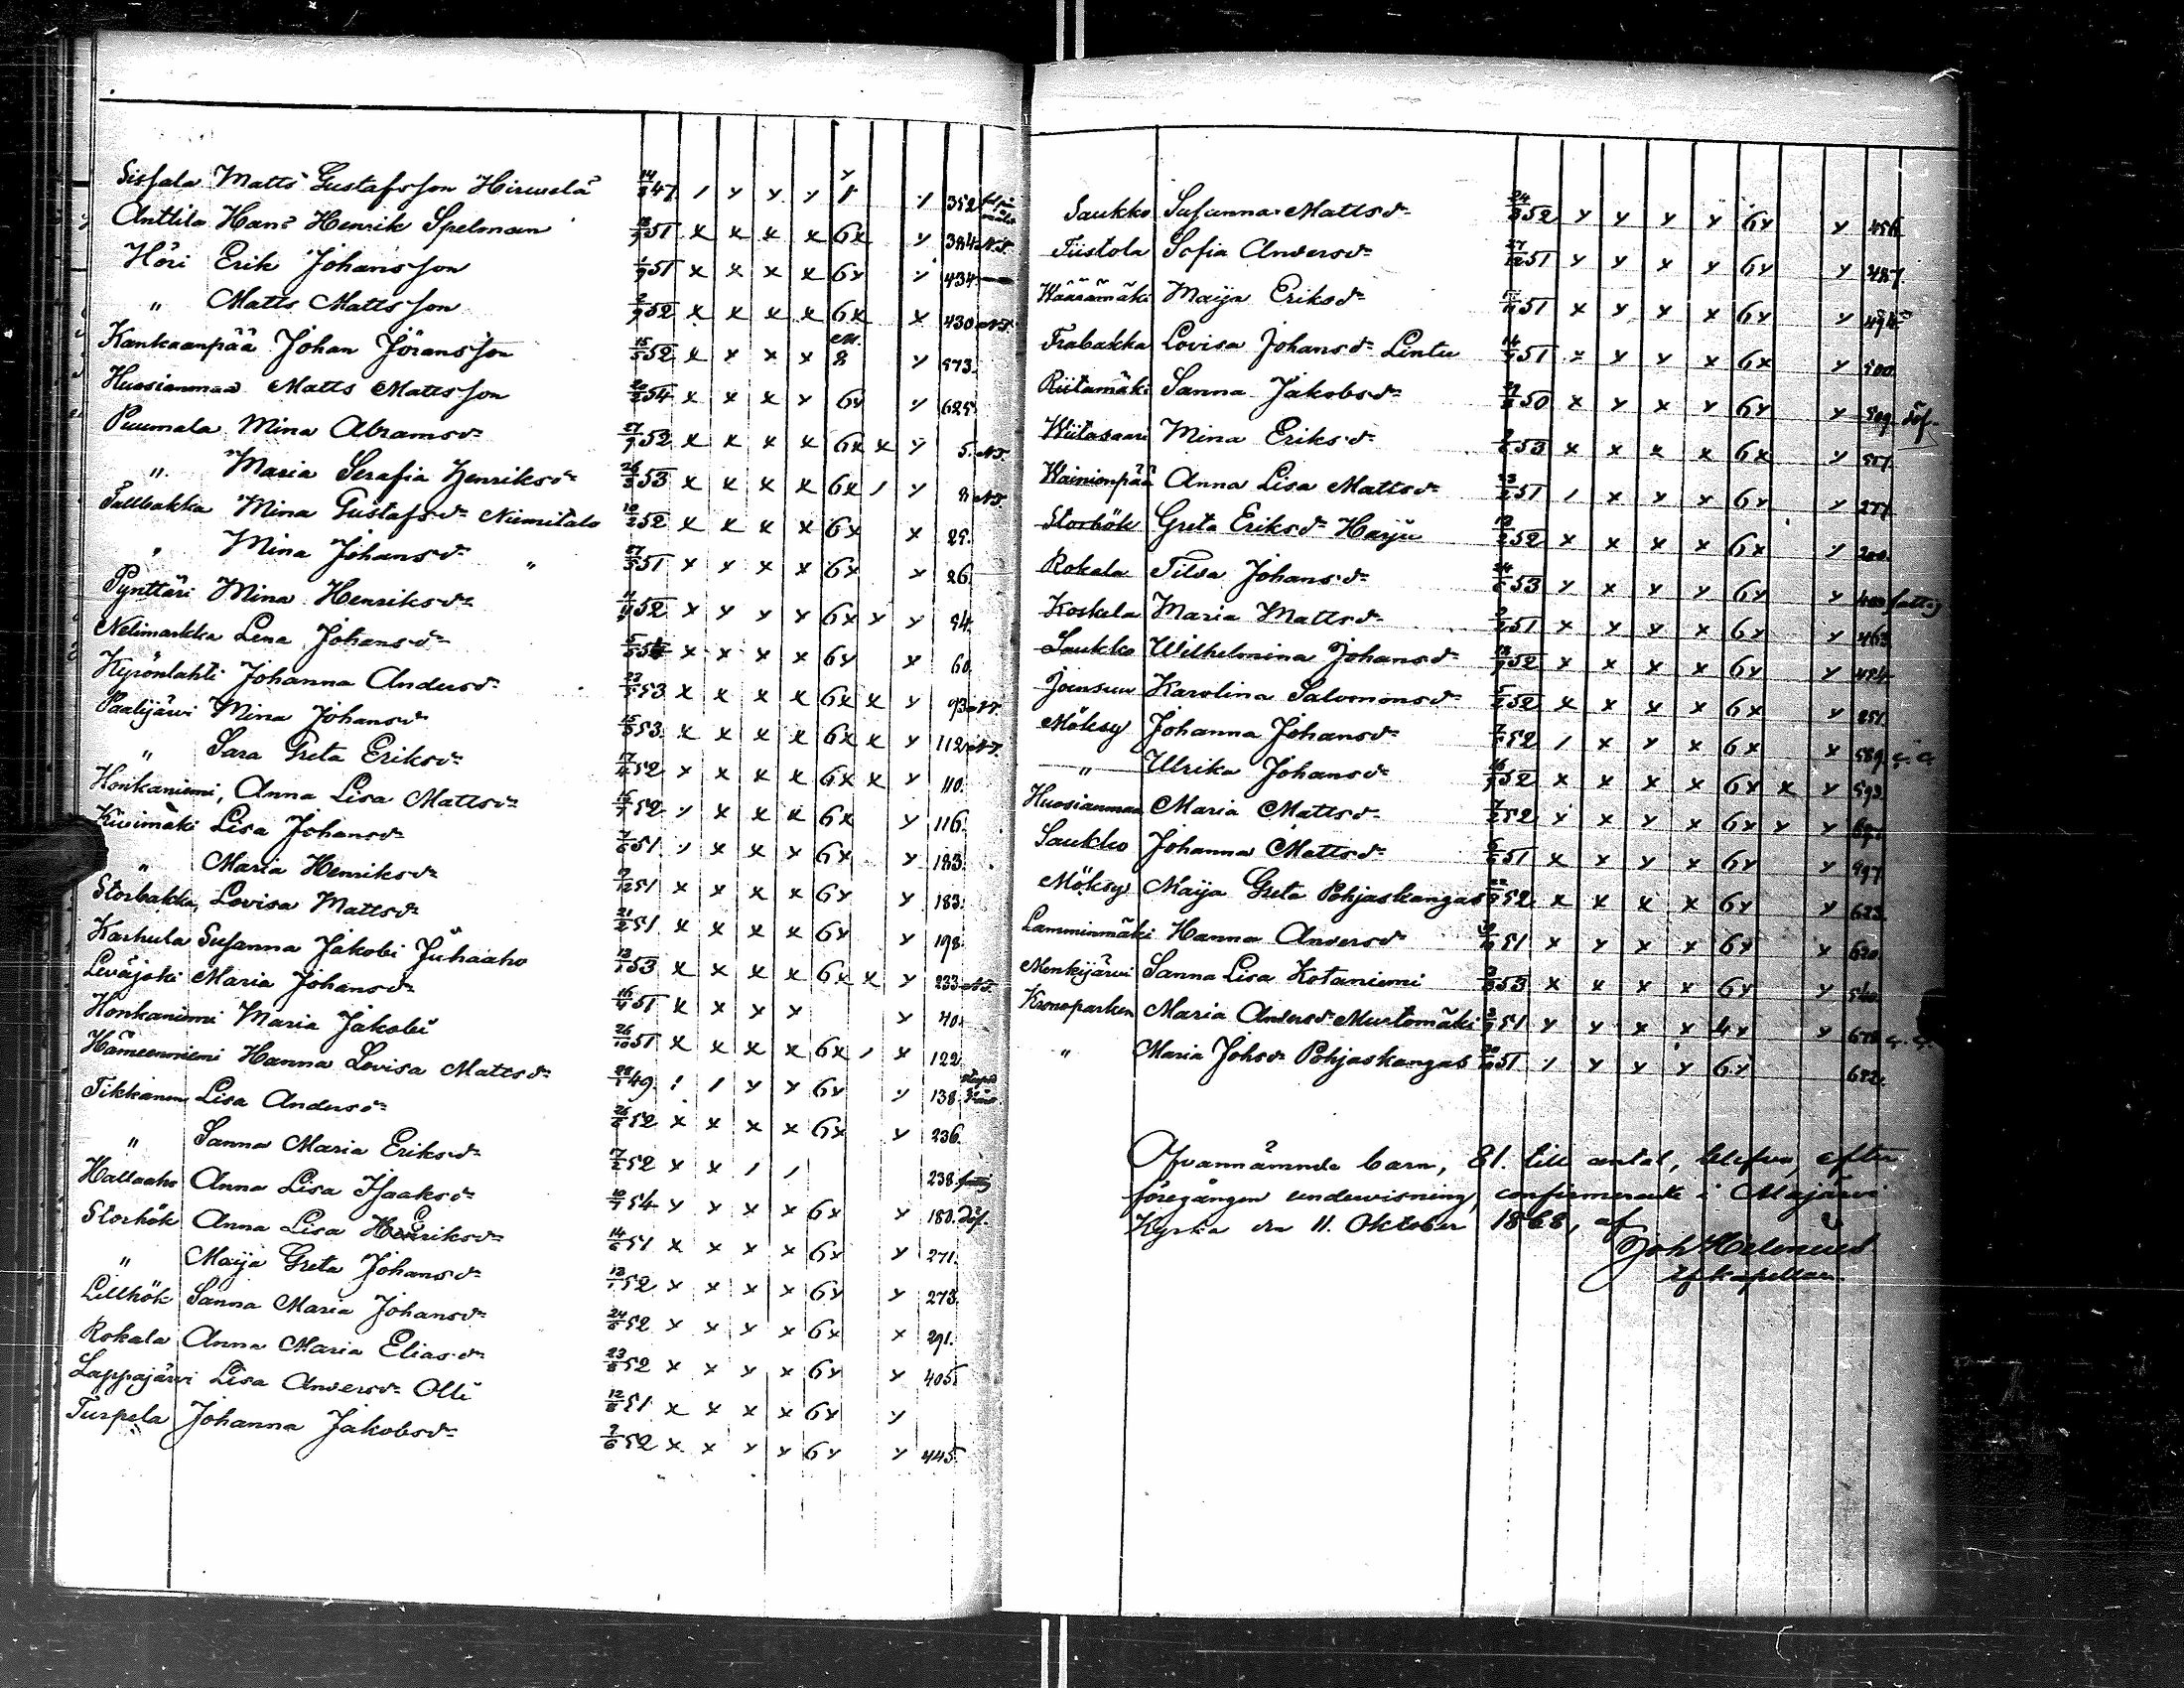 Sissala Matts Gustafsson Hirwelä 14/8 47 / y y y y 1 y 352
Anttila Hans Henrik Spelman 51 x x x x 6x y 384 N.T.
Höri Erik Johansson 1/9 51 x x x x 6y y 434
" Matts Mattsson 2/9 52 x x x x 6x x 430 N.T.
Kankaanpää Johan Jöransson 15/5 52 x x x x 8 y 573.
Huosianmaa Matts Mattsson 54 x x x y 6y y 625.
Puumala Mina Abramsdr 27/9 52 x x x x 6x x y 5. N.T.
" Maria Serafia Henriksdr 53 x x x x 6x / y 8 N.T.
Tallbakka Mina Gustafsdr Niemitalo 52 x x x x 6x x 25.
" Mina Johansdr " 51 x x x x 6x x 26
Pynttäri Mina Henriksdr 52 x y y y 6x y y 54.
Nelimarkka Lena Johansdr x x x x 6y x 60.
Kyrönlahti Johanna Andersdr 53 x x x x 6x x y 93 N.T.
Paalijärvi Mina Johansdr 53. x x x x 6x x y 112 N.T.
" Sara Greta Eriksdr 52 x x x x 6x x y 110.
Honkaniemi, Anna Lisa Mattsdr 52 y x x x 6x y 116.
Kivimäki Lisa Johansdr 51. y x x x 6x y 183.
" Maria Henriksdr 51 x x x x 6y y 183.
Storbakka, Lovisa Mattsdr 21/2 51. x x x x 6y y 198
Karhula Susanna Jakobi Juhaaho 53 x x x x 6x x y 233 N.T.
Leväjoki Maria Johansdr 16/4 51 x x x x y 40.
Honkaniemi Maria Jakobi 26/10 51 x x x x 6x / x 122
Hämeenniemi Hanna Lovisa Mattsdr 49. / / y y 6y y 138.
Tikkanen Lisa Andersdr 52 x x x x 6x y 236.
" Sanna Maria Eriksdr 17/2 52 x x / / 238. fattig
Hallaaho Anna Lisa Isaaksdr 54 y y x x 6x x 180. Döf.
Storhök Anna Lisa Henriksdr 14/6 51 x x x x 6y y 271.
" Maija Greta Johansdr 52 x x x x 6y y 273.
Lillhök Sanna Maria Johansdr 24/6 52 x x x x 6x x 291.
Rokala Anna Maria Eliasdr 23/8 52 x x y x 6y y 405.
Lappajärvi Lisa Andersdr Olli 12/8 51 x x x x 6y y
Turpela Johanna Jakobsdr 9/6 52 x x y y 6y y 445.
Saukko Susanna Mattsdr 52 y y y y 6y y 456
Tiistola Sofia Andersdr 27/12 51 y y x y 6y y 487.
Wäärämäki Maija Eriksdr 51 x x x x 6y y
Frabakka Lovisa Johansdr Lintu 51 x y y x 6x y 500.
Riitamäki Sanna Jakobsdr 50 x y x y 6y y 509. Döf.
Wiitasaari Mina Eriksdr 53 x x x x 6x y 557.
Wainionpää Anna Lisa Mattsdr 51 / x y x 6y y 277
Storhök Greta Eriksdr Harju 52 x x x x 6x y 200.
Rokala Tilda Johansdr 53 y x y y 6y y 400 fattig
Koskela Maria Mattsdr 51 x y y x 6y y 463
Saukko Wilhelmina Johansdr 52 x x x x 6y y 494
Joensuu Karolina Salomonsdr 52 x x x x 6x y 251.
Möksy Johanna Johansdr 52 / x y x 6x x 589.
" Ulrika Johansdr 16/9 52 x x x x 6y x y 593
Huosianmaa Maria Mattsdr 52 y x y x 6y y y
Saukko Johanna Mattsdr 51 x x y x 6y y 497
Möksy Maija Greta Pohjaskangas 52. x x x x 6y y 623.
Lamminmäki Hanna Andersdr 51 x y x x 6y x 620.
Menkijärvi Sanna Lisa Kotaniemi 53 x x x x 6y y 560
Kronoparken Maria Andersdr Mustamäki 51 y y x y 4y y
" Maria Johsdr Pohjaskangas 51 / y y y 6y 652.
Ofvannämnde barn, 81. till antal, blefvo, efter
föregången undervisning, confirmerade i Alajärvi
Kyrka den 11. Oktober 1868, af
Joh Helenius
v. kapellan.